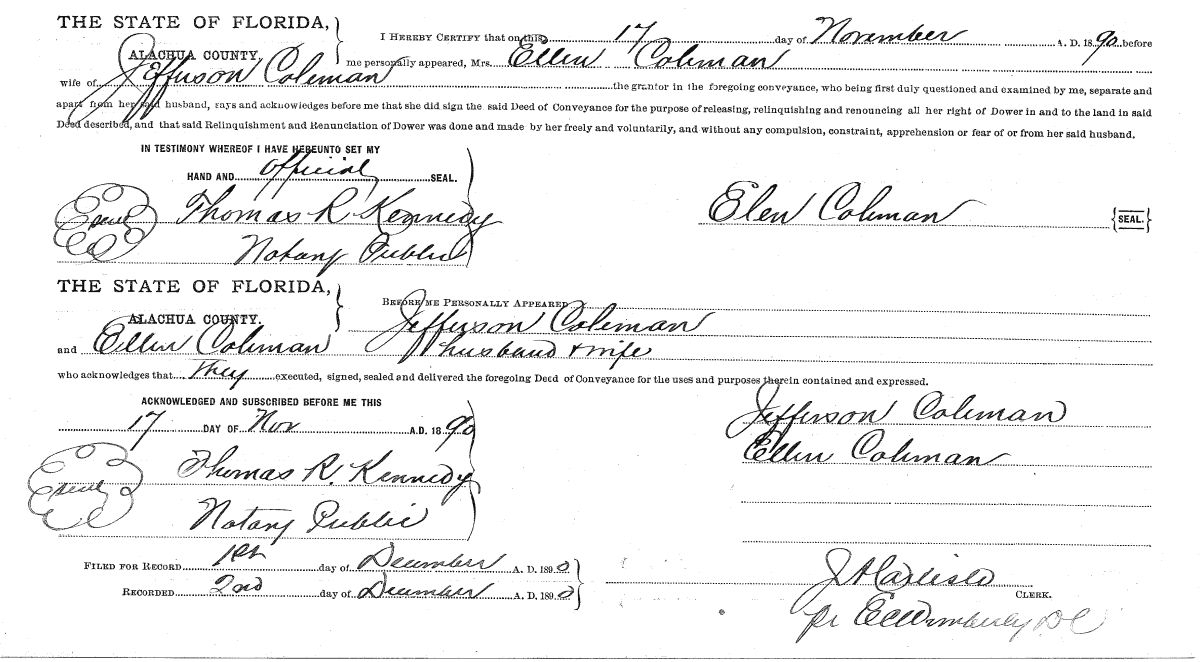 THE STATE OF FLORIDA,
ALACHUA COUNTY.
I HEREBY CERTIFY that on this 17 day of November A. D. 1890 before
me personally appeared, Mrs. Ellen Coleman
wife of Jefferson Coleman the grantor in the foregoing conveyance, who being first duly questioned and examined by me, separate and
apart from her said husband, says and acknowledges before me that she did sign the said Deed of Conveyance for the purpose of releasing, relinquishing and renouncing all her right of Dower in and to the land in said
Deed described, and that said Relinquishment and Renunciation of Dower was done and made by her freely and voluntarily, and without any compulsion, constraint, apprehension or fear of or from her said husband.
IN TESTIMONY WHEREOF I HAVE HEREUNTO SET MY
HAND AND official SEAL.
Seal Thomas R. Kennedy
Notary Public
Elen Coleman {SEAL.}
THE STATE OF FLORIDA,
ALACHUA COUNTY.
BEFORE ME PERSONALLY APPEARED
Jefferson Coleman
and Ellen Coleman husband & wife
who acknowledges that they executed, signed, sealed and delivered the foregoing Deed of Conveyance for the uses and purposes therein contained and expressed.
ACKNOWLEDGED AND SUBSCRIBED BEFORE ME THIS
17 DAY OF Nov A.D. 1890
Seal Thomas R. Kennedy
Notary Public
Jefferson Coleman
Ellen Coleman
FILED FOR RECORD 1st day of December A. D. 1890
RECORDED 2nd day of December A. D. 1890
J A Carlisle
CLERK.
pr E C Wimberly D C